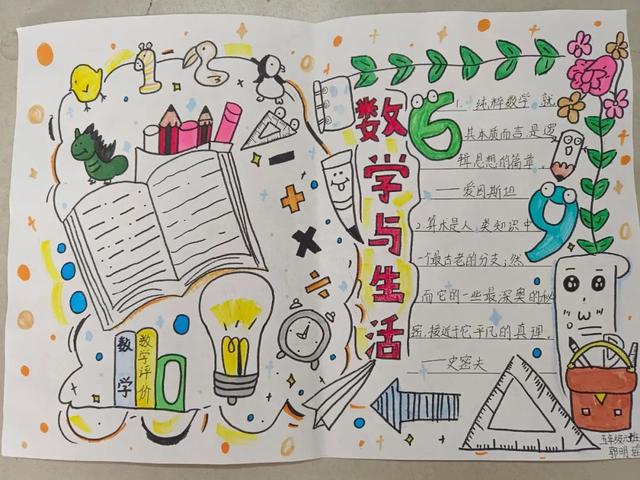 数学与生活
1. 纯粹数学，就
其本质而言，是逻
辑思想的简章，
——爱因斯坦
2.算术是人类知识中
一个最古老的分支；然
而它的一些最深奥的秘
密，接近于它平凡的真理。
——史密夫
数学
数学评价
0
6
9
五年级六班
郭明